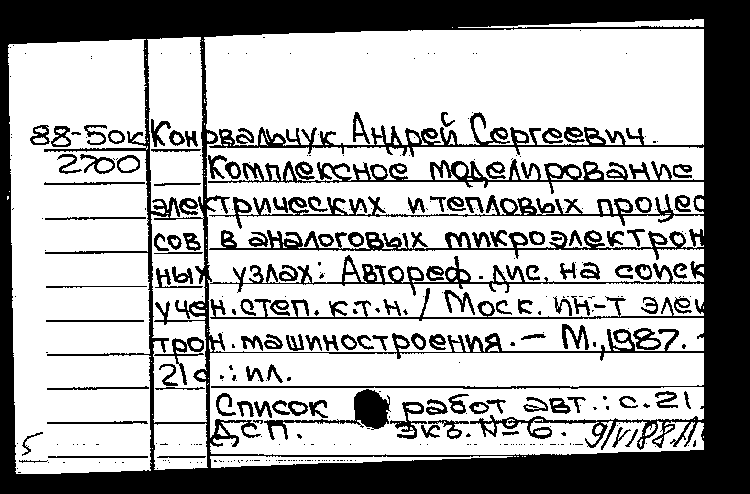 88-50к Коновальчук, Андрей Сергеевич.
2700 Комплексное моделирование
электрических и тепловых процес
сов в аналоговых микроэлектрон
ных узлах: Автореф. дис. на соиск
учен. степ. к.т.н. / Моск. ин-т элек
трон. машиностроения. — М., 1987. -
21с.: ил.
Список работ авт.: с.21.
ДСП. экз. №6. 9/VI88.
5